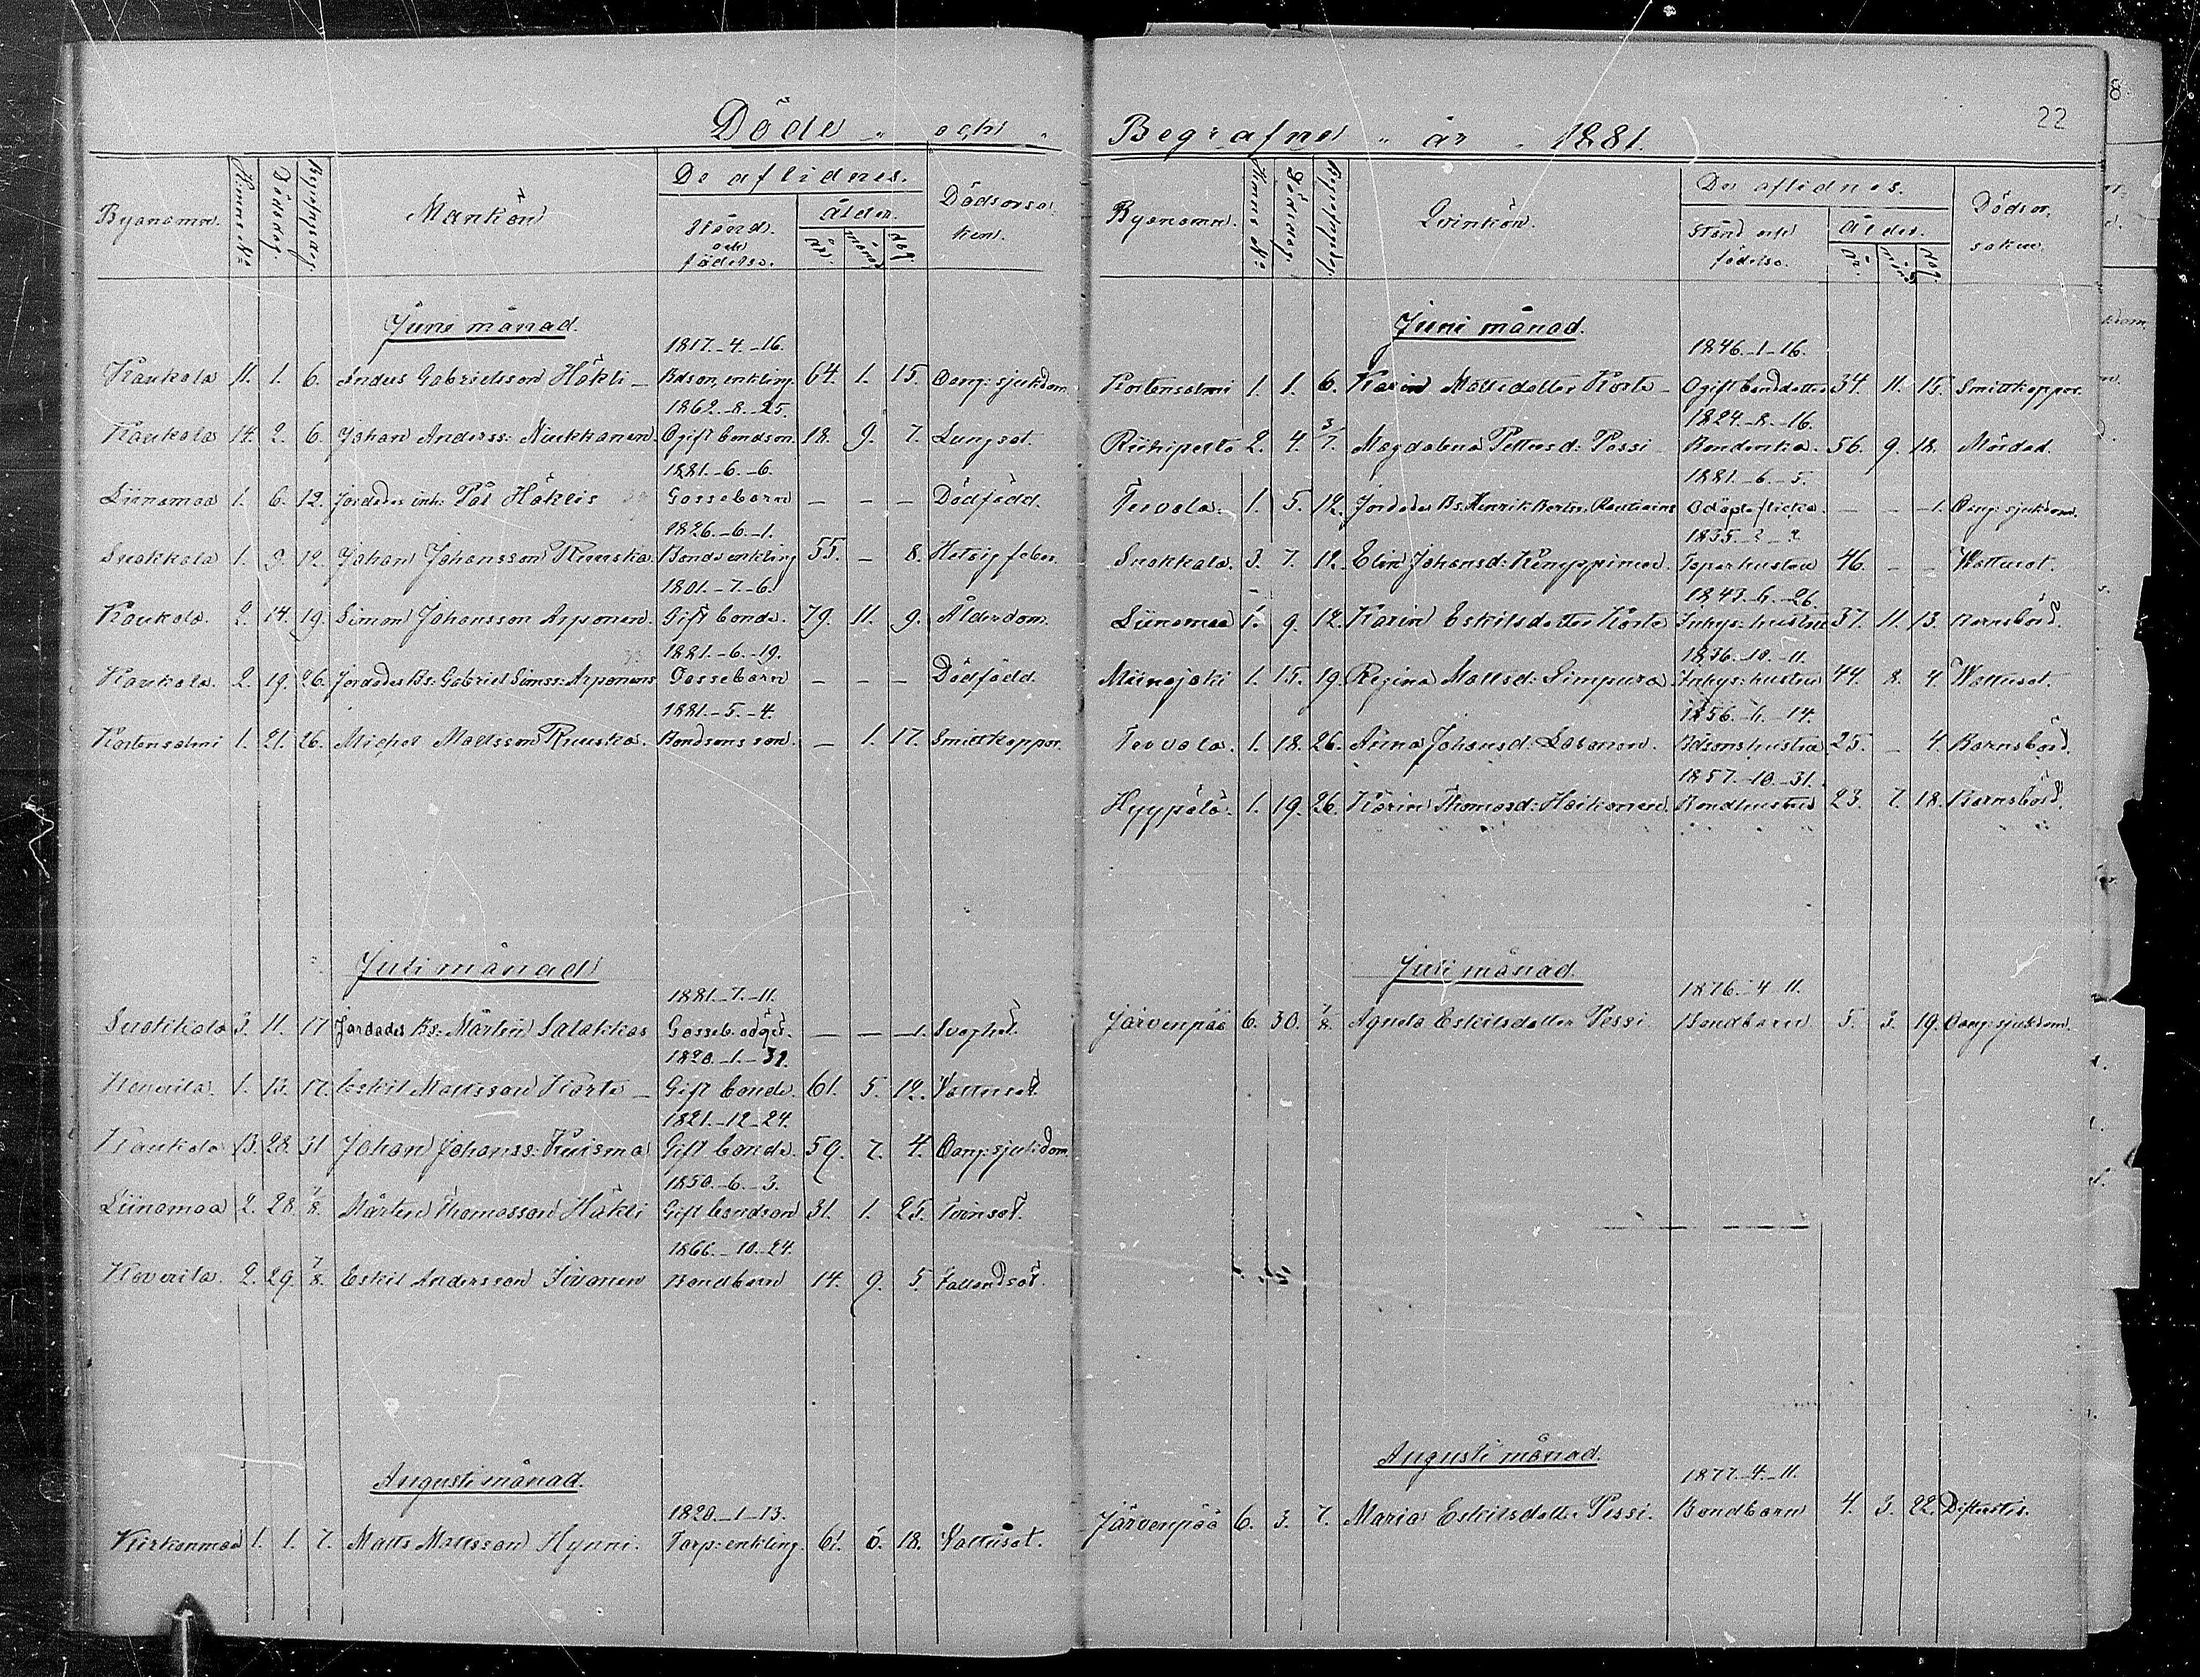 22
Döde och Begrafne år 1881.
Byanamn. Hemans No Dödsdag. Begrafn.dag. Mankön De aflidnes. Dödsorsaken.
Stånd och födelse. Ålder. år. månad dag.
Juni månad.
1817.-4.-16.
Kaukola 11. 1. 6. Anders Gabrielsson Häkli - Bdson, enkling. 64. 1. 15. Oang: sjukdom.
1862.-8.-25.
Kaukola 14. 2. 6. Johan Anderss: Niukkanen. Ogift bondson. 18. 9. 7. Lungsot.
1881.-6.-6.
Liinamaa 1. 6. 12. Jordades inh: Pål Häklis Gossebarn - - - Dödfödd.
1826.-6.-1.
Suokkala 1. 9. 12. Johan Johansson Ruuska. Bonde enkling 55. - 8. Hetsig feber.
1801.-7.-6.
Kaukola. 2. 14. 19. Simon Johansson Arponen. Gift bonde. 79. 11. 9. Ålderdom.
1881.-6.-19.
Kaukola. 2. 19. 26. Jordades Bs: Gabriel Simss: Arponens Gossebarn - - - Dödfödd.
1881.-5.-4.
Kortensalmi 1. 21. 26. Michel Mattsson Ruuska. Bondsons son. - 1. 17. Smittkoppor.
Juli månad
1881.-7.-11.
Suokkala 3. 11. 17 Jordades Bs: Mårten Salakkas Gosseb. odöpt. - - 1. Svaghet.
1820.-1.-31.
Koverila. 1. 13. 17. Eskil Mattsson Korte - Gift bonde. 61. 5. 12. Vattusot.
1821.-12-24.
Kaukola 13. 28. 31 Johan Johanss: Kuisma Gift bonde. 59. 7. 4. Oang: sjukdom.
1850.-6.-3.
Liinamaa 2. 28. 7/8. Mårten Thomasson Häkli Gift bondson 31. 1. 25. Tvinsot.
1866.-10.-24.
Koverila. 2. 29. 7/8. Eskil Andersson Sivonen Bondbarn 14. 9. 5. Fallandsot.
Augusti månad.
1820.-1-13.
Kirkonmaa 1. 1. 7. Matts Mattsson Hynni. Torp: enkling. 61. 6. 18. Vattusot.
Byanamn. Hemans No. Dödsdag. Begrafn.dag. Qvinkön. De aflidnes. Dödsorsaken.
Stånd och födelse. Ålder. år. månd dag.
Juni månad.
1846.-1-16.
Kortensalmi 1. 1. 6. Karin Mattsdotter Korte - Ogift bonddotter 34. 11. 15. Smittkoppor.
1824.-8.-16.
Riihipelto 2. 4. 3/7. Magdalena Pettersd: Pessi Bondenka. 56. 9. 18. Mördad.
1881.-6.-5.
Tervola. 1. 5. 12. Jordades Bs. Henrik Bertss. Rautiains Odöpt flicka. - - 1. Oang: sjukdom.
1835.-2-2.
Suokkala. 3. 7. 12. Elin Johansd: Kämppinen. Torparhustru 46. - - Wattusot.
1843.-6.-26.
Liinamaa 1. 9. 12. Karin Eskilsdotter Korte Inhys: hustru 37. 11. 13. Barnsbörd.
1836.-10.-11.
Miinajoki 1. 15. 19. Regina Mattsd: Simpura Inhys: hustru 44. 8. 4. Wattusot.
1856.-6.-14.
Tervola. 1. 18. 26. Anna Johansd: Lasonen. Bdsonshustru 25. - 4. Barnsbörd.
1857.-10.-31.
Hyypölä. 1. 19. 26. Karin Thomasd: Haikonen. Bondhustru 23. 7. 18. Barnsbörd.
Juli månad.
1876.-4 11.
Järvenpää 6. 30. 7/8. Agneta Eskilsdotter Pessi Bondbarn 5. 3. 19. Oang: sjukdom.
Augusti månad.
1877.-4.-11.
Järvenpää 6. 3. 7. Maria Eskilsdotter Pessi. Bondbarn 4. 3. 22. Difteritis.